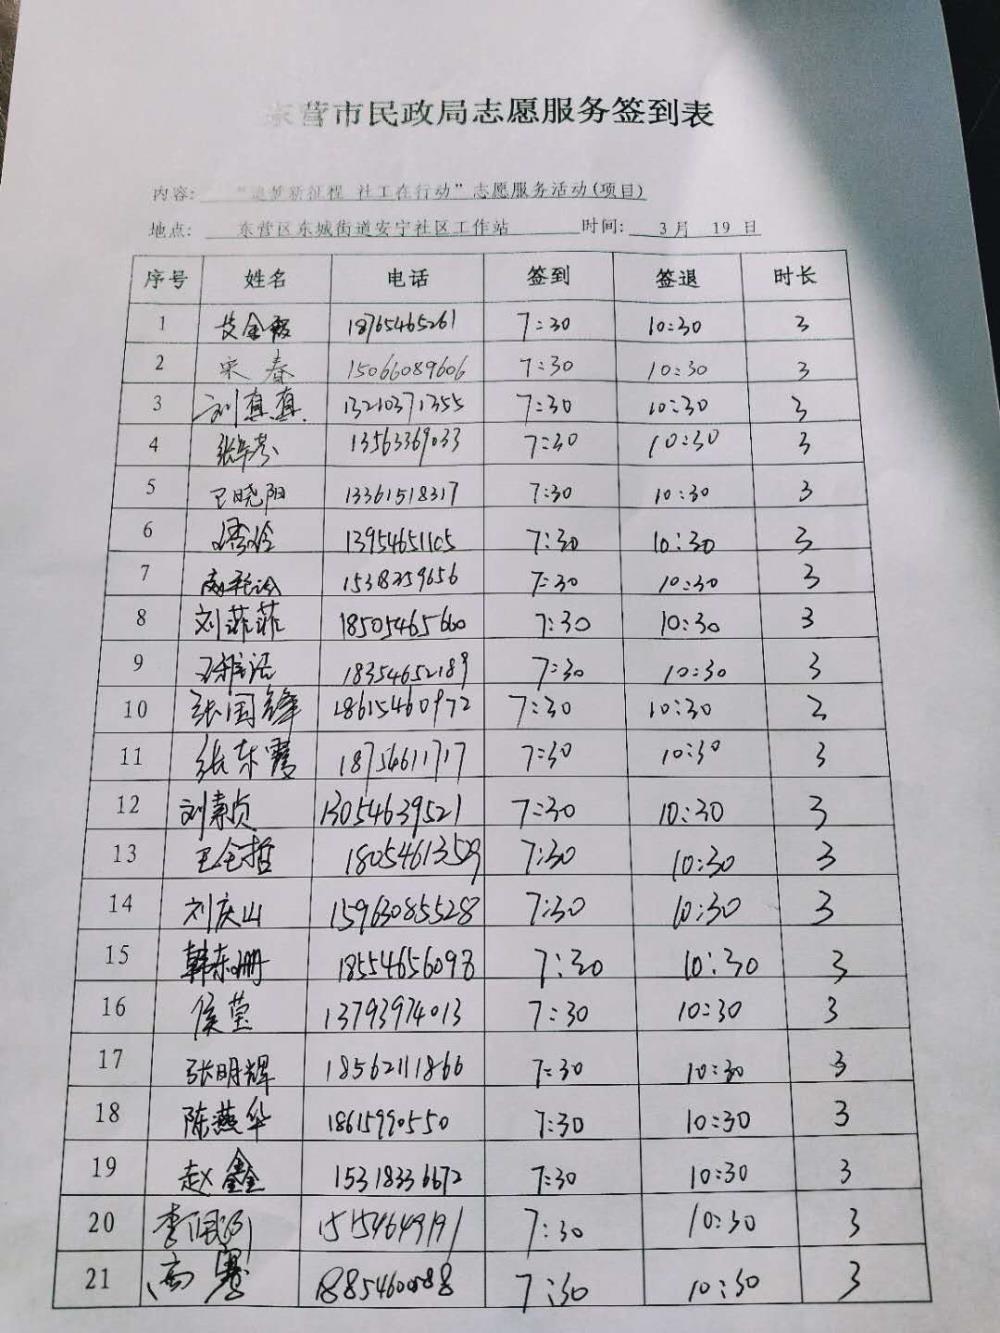 东营市民政局志愿服务签到表
内容: "追梦新征程 社工在行动"志愿服务活动(项目)
地点: 东营区东城街道安宁社区工作站 时间: 3月 19 日
序号 姓名 电话 签到 签退 时长
1 18765465261 7:30 10:30 3
2 宋春 15066089606 7:30 10:30 3
3 刘真真 13210371355 7:30 10:30 3
4 13563369033 7:30 10:30 3
5 王晓阳 13361518317 7:30 10:30 3
6 13954651105 7:30 10:30 3
7 15318259656 7:30 10:30 3
8 刘菲菲 18505465660 7:30 10:30 3
9 18354652189 7:30 10:30 3
10 张国锋 18615460972 7:30 10:30 3
11 张东霞 18754611717 7:30 10:30 3
12 刘素贞 13054639521 7:30 10:30 3
13 王全哲 18054613509 7:30 10:30 3
14 刘庆山 15963085528 7:30 10:30 3
15 韩东珊 18554656098 7:30 10:30 3
16 侯莹 13793974013 7:30 10:30 3
17 张明辉 18562111866 7:30 10:30 3
18 陈燕华 18615990550 7:30 10:30 3
19 赵鑫 15318336672 7:30 10:30 3
20 15154649191 7:30 10:30 3
21 高骞 7:30 10:30 3